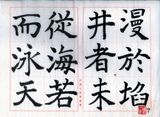 漫於埳
井者未
從海若
而泳天